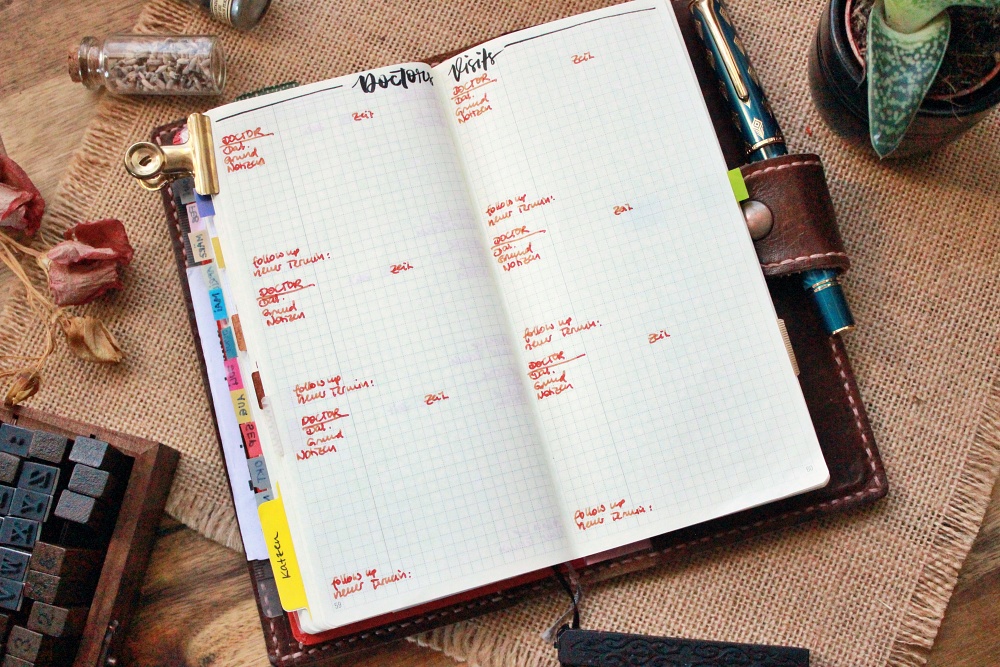 Doctors Visits
Zeit
DOCTOR
Dat.
Grund
Notizen
follow up
neuer Termin:
Zeit
DOCTOR
Dat.
Grund
Notizen
follow up
neuer Termin:
Zeit
DOCTOR
Dat.
Grund
Notizen
follow up
neuer Termin:
59
Zeit
DOCTOR
Dat.
Grund
Notizen
follow up
neuer Termin:
Zeit
DOCTOR
Dat.
Grund
Notizen
follow up
neuer Termin:
Zeit
DOCTOR
Dat.
Grund
Notizen
follow up
neuer Termin:
60
Katzen